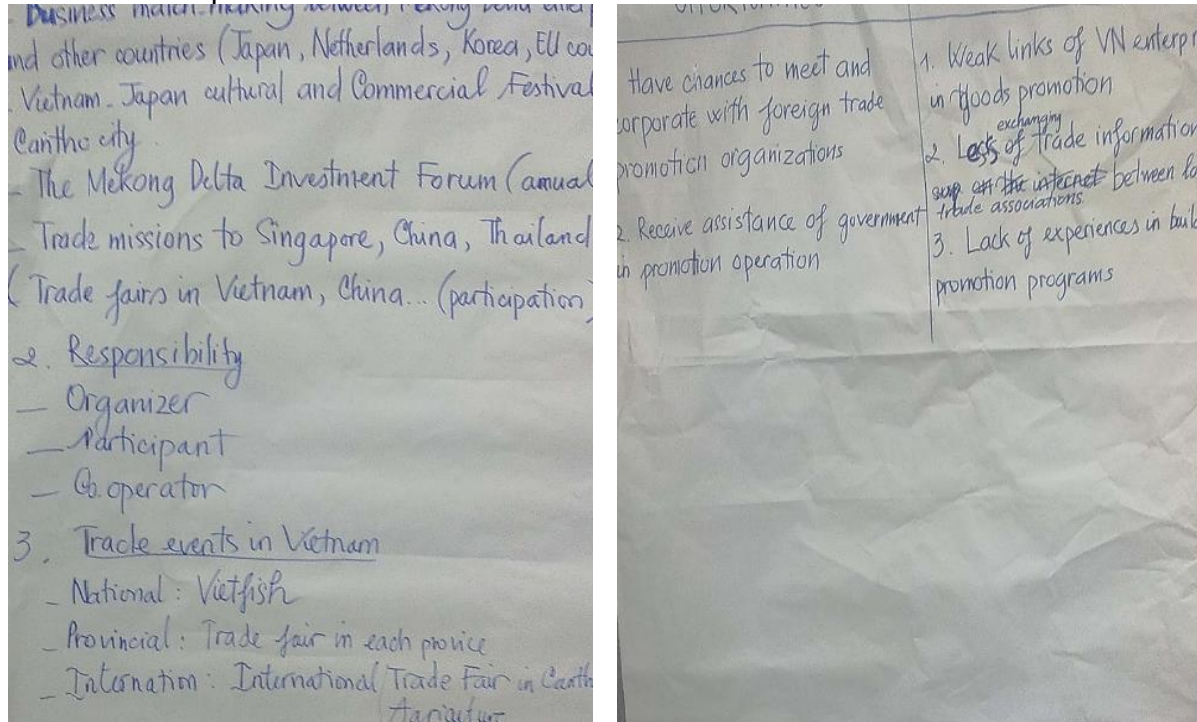 Business match making between Mekong Delta
and other countries (Japan, Netherlands, Korea, EU
Vietnam - Japan cultural and Commercial Festival
Cantho city.
- The Mekong Delta Investment Forum (annual
- Trade missions to Singapore, China, Thailand
( Trade fairs in Vietnam, China... (participation)
2. Responsibility
- Organizer
- Participant
- Co.operator
3. Trade events in Vietnam
- National : Vietfish
- Provincial : Trade fair in each provice
- Internation : International Trade Fair in Canth
Have chances to meet and
corporate with foreign trade
promotion organizations
2. Receive assistance of government
in promotion operation
1. Weak links of VN enterpr
in goods promotion
exchanging
2. Less of trade information
on the internet between
trade associations.
3. Lack of experiences in buil
promotion programs